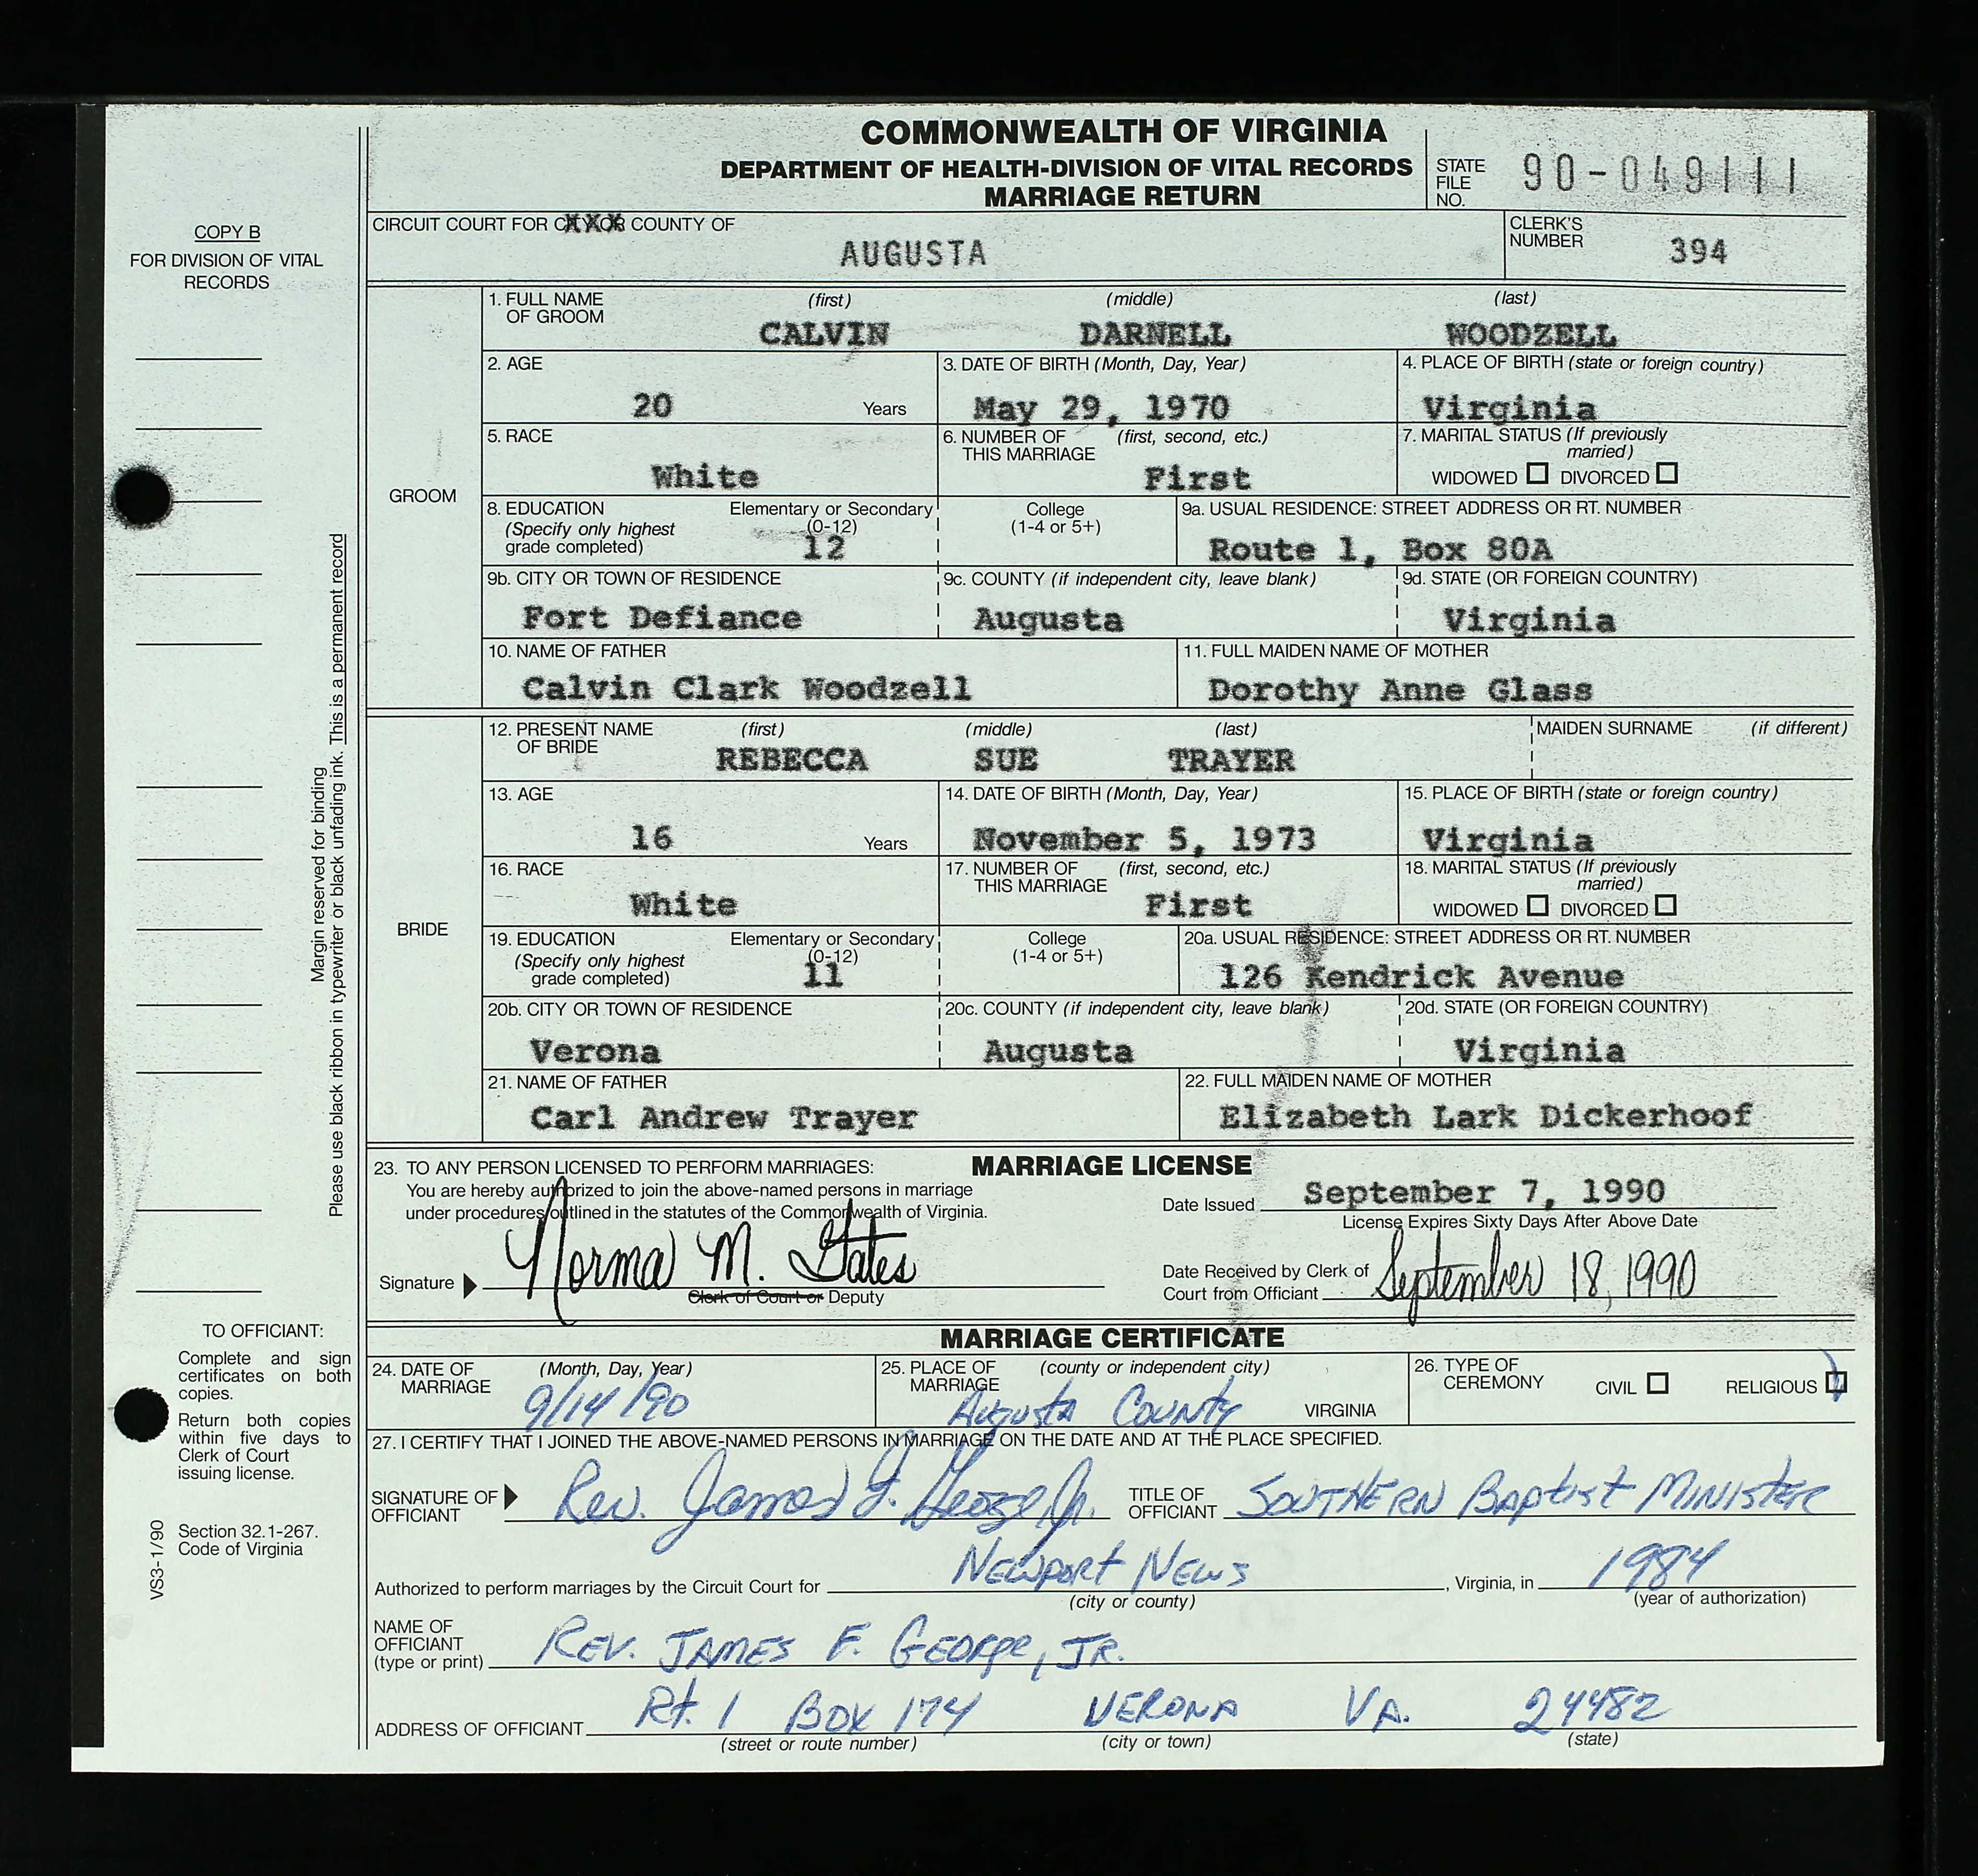 COMMONWEALTH OF VIRGINIA
DEPARTMENT OF HEALTH-DIVISION OF VITAL RECORDS
MARRIAGE RETURN
STATE FILE NO. 90-049111
COPY B
FOR DIVISION OF VITAL
RECORDS
CIRCUIT COURT FOR CITY OR COUNTY OF
XXX
AUGUSTA
CLERK'S NUMBER 394
GROOM
1. FULL NAME OF GROOM (first) (middle) (last)
CALVIN DARNELL WOODZELL
2. AGE 3. DATE OF BIRTH (Month, Day, Year) 4. PLACE OF BIRTH (state or foreign country)
20 Years May 29, 1970 Virginia
5. RACE 6. NUMBER OF THIS MARRIAGE (first, second, etc.) 7. MARITAL STATUS (If previously married)
White First WIDOWED DIVORCED
8. EDUCATION (Specify only highest grade completed) Elementary or Secondary (0-12) College (1-4 or 5+) 9a. USUAL RESIDENCE: STREET ADDRESS OR RT. NUMBER
12 Route 1, Box 80A
9b. CITY OR TOWN OF RESIDENCE 9c. COUNTY (if independent city, leave blank) 9d. STATE (OR FOREIGN COUNTRY)
Fort Defiance Augusta Virginia
10. NAME OF FATHER 11. FULL MAIDEN NAME OF MOTHER
Calvin Clark Woodzell Dorothy Anne Glass
BRIDE
12. PRESENT NAME OF BRIDE (first) (middle) (last) MAIDEN SURNAME (if different)
REBECCA SUE TRAYER
13. AGE 14. DATE OF BIRTH (Month, Day, Year) 15. PLACE OF BIRTH (state or foreign country)
16 Years November 5, 1973 Virginia
16. RACE 17. NUMBER OF THIS MARRIAGE (first, second, etc.) 18. MARITAL STATUS (If previously married)
White First WIDOWED DIVORCED
19. EDUCATION (Specify only highest grade completed) Elementary or Secondary (0-12) College (1-4 or 5+) 20a. USUAL RESIDENCE: STREET ADDRESS OR RT. NUMBER
11 126 Kendrick Avenue
20b. CITY OR TOWN OF RESIDENCE 20c. COUNTY (if independent city, leave blank) 20d. STATE (OR FOREIGN COUNTRY)
Verona Augusta Virginia
21. NAME OF FATHER 22. FULL MAIDEN NAME OF MOTHER
Carl Andrew Trayer Elizabeth Lark Dickerhoof
Margin reserved for binding
Please use black ribbon in typewriter or black unfading ink. This is a permanent record
23. TO ANY PERSON LICENSED TO PERFORM MARRIAGES: MARRIAGE LICENSE
You are hereby authorized to join the above-named persons in marriage
under procedures outlined in the statutes of the Commonwealth of Virginia.
Date Issued September 7, 1990
License Expires Sixty Days After Above Date
Signature Norma M. Gates
Clerk of Court or Deputy
Date Received by Clerk of
Court from Officiant September 18, 1990
MARRIAGE CERTIFICATE
24. DATE OF MARRIAGE (Month, Day, Year) 25. PLACE OF MARRIAGE (county or independent city) 26. TYPE OF CEREMONY CIVIL RELIGIOUS
9/14/90 Augusta County VIRGINIA
27. I CERTIFY THAT I JOINED THE ABOVE-NAMED PERSONS IN MARRIAGE ON THE DATE AND AT THE PLACE SPECIFIED.
SIGNATURE OF OFFICIANT Rev. James F. George Jr. TITLE OF OFFICIANT SOUTHERN BAptist MINISTER
Authorized to perform marriages by the Circuit Court for NEWport NEWS, Virginia, in 1984
(city or county) (year of authorization)
NAME OF OFFICIANT (type or print) REV. JAMES F. GEORGE, JR.
ADDRESS OF OFFICIANT Rt. 1 BOX 174 VERONA VA. 24482
(street or route number) (city or town) (state)
TO OFFICIANT:
Complete and sign
certificates on both
copies.
Return both copies
within five days to
Clerk of Court
issuing license.
Section 32.1-267.
Code of Virginia
VS3-1/90